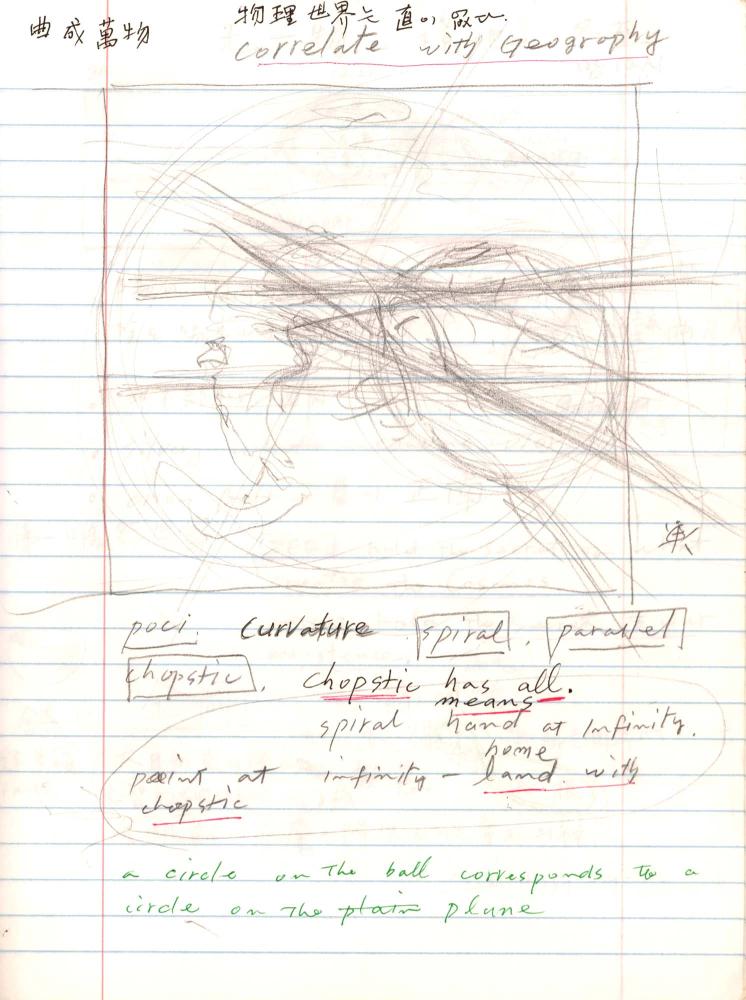 曲成萬物
物理世界는 直이 없다.
correlate with Geography
poci. Curvature spiral, parallel
chopstic, chopstic has all.
means
spiral hand at Infinity.
home
point at infinity - land with
chopstic
a circle on the ball corresponds to a
circle on the plain plane